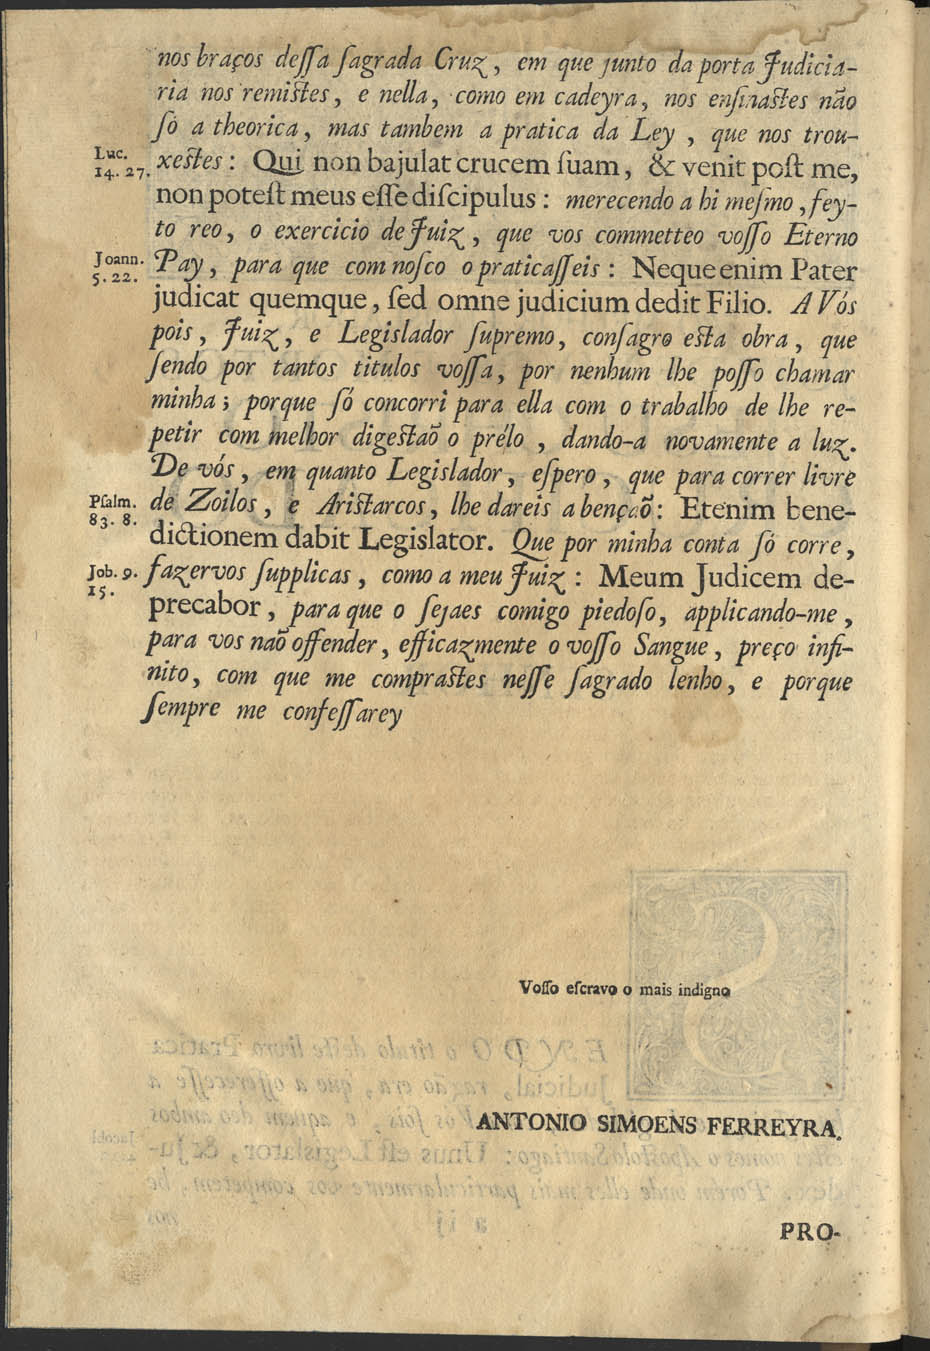 nos braços deſſa ſagrada Cruz, em que junto da porta Judicia-
ria nos remiſtes, e nella, como em cadeyra, nos enſinaſtes não
ſó a theorica, mas tambem a pratica da Ley, que nos trou-
Luc. 14. 27.
xeſtes: Qui non bajulat crucem ſuam, & venit poſt me,
non poteſt meus eſſe diſcipulus: merecendo a hi meſmo, fey-
to reo, o exercicio de Juiz, que vos commetteo voſſo Eterno
Joann. 5. 22.
Pay, para que comnoſco o praticaſſeis: Neque enim Pater
judicat quemque, ſed omne judicium dedit Filio. A Vós
pois, Juiz, e Legislador ſupremo, conſagro eſta obra, que
ſendo por tantos titulos voſſa, por nenhum lhe poſſo chamar
minha; porque ſó concorri para ella com o trabalho de lhe re-
petir com melhor digeſtaõ o prélo, dando-a novamente a luz.
De vós, em quanto Legislador, eſpero, que para correr livre
Pſalm. 83. 8.
de Zoilos, e Ariſtarcos, lhe dareis a bençaõ: Etenim bene-
dictionem dabit Legislator. Que por minha conta ſó corre,
Job. 9. 15.
fazervos ſupplicas, como a meu Juiz: Meum Judicem de-
precabor, para que o ſejaes comigo piedoſo, applicando-me,
para vos naõ offender, efficazmente o voſſo Sangue, preço infi-
nito, com que me compraſtes neſſe ſagrado lenho, e porque
ſempre me confeſſarey
Voſſo eſcravo o mais indigno
ANTONIO SIMOENS FERREYRA.
PRO-